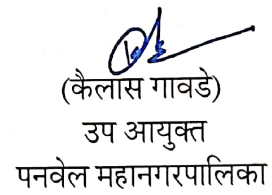 (कैलास गावडे)
उप आयुक्त
पनवेल महानगरपालिका